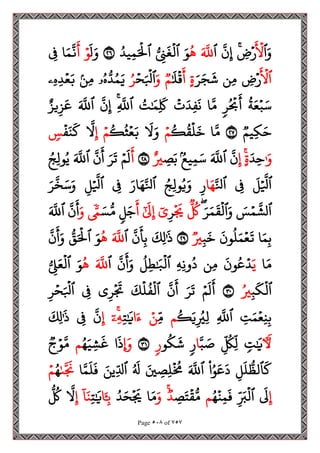 وَٱلْأَرْضِۚ إِنَّ ٱللَّهَ هُوَ ٱلْغَنِىُّ ٱلْحَمِيدُ ٢٦ وَلَوْ أَنَّمَا فِى
ٱلْأَرْضِ مِن شَجَرَةٍ أَقْلَٰمٌ وَٱلْبَحْرُ يَمُدُّهُۥ مِنۢ بَعْدِهِۦ
سَبْعَةُ أَبْحُرٍ مَّا نَفِدَتْ كَلِمَٰتُ ٱللَّهِۚ إِنَّ ٱللَّهَ عَزِيزٌ
حَكِيمٌ ٢٧ مَّا خَلْقُكُمْ وَلَا بَعْثُكُمْ إِلَّا كَنَفْسٍ
وَٰحِدَةٍۚ إِنَّ ٱللَّهَ سَمِيعٌۢ بَصِيرٌ ٢٨ أَلَمْ تَرَ أَنَّ ٱللَّهَ يُولِجُ
ٱلَّيْلَ فِى ٱلنَّهَارِ وَيُولِجُ ٱلنَّهَارَ فِى ٱلَّيْلِ وَسَخَّرَ
ٱلشَّمْسَ وَٱلْقَمَرَۖ كُلٌّ يَجْرِىٓ إِلَىٰٓ أَجَلٍ مُّسَمًّى وَأَنَّ ٱللَّهَ
بِمَا تَعْمَلُونَ خَبِيرٌ ٢٩ ذَٰلِكَ بِأَنَّ ٱللَّهَ هُوَ ٱلْحَقُّ وَأَنَّ
مَا يَدْعُونَ مِن دُونِهِ ٱلْبَٰطِلُ وَأَنَّ ٱللَّهَ هُوَ ٱلْعَلِىُّ
ٱلْكَبِيرُ ٣٠ أَلَمْ تَرَ أَنَّ ٱلْفُلْكَ تَجْرِى فِى ٱلْبَحْرِ
بِنِعْمَتِ ٱللَّهِ لِيُرِيَكُم مِّنْ ءَايَٰتِهِۦٓۚ إِنَّ فِى ذَٰلِكَ
لَءَايَٰتٍ لِّكُلِّ صَبَّارٍ شَكُورٍ ٣١ وَإِذَا غَشِيَهُم مَّوْجٌ
كَٱلظُّلَلِ دَعَوُا۟ ٱللَّهَ مُخْلِصِينَ لَهُ ٱلدِّينَ فَلَمَّا نَجَّىٰهُمْ
إِلَى ٱلْبَرِّ فَمِنْهُم مُّقْتَصِدٌۚ وَمَا يَجْحَدُ بِـَٔايَٰتِنَآ إِلَّا كُلُّ
Page ٥٠٨ of ٧٥٧